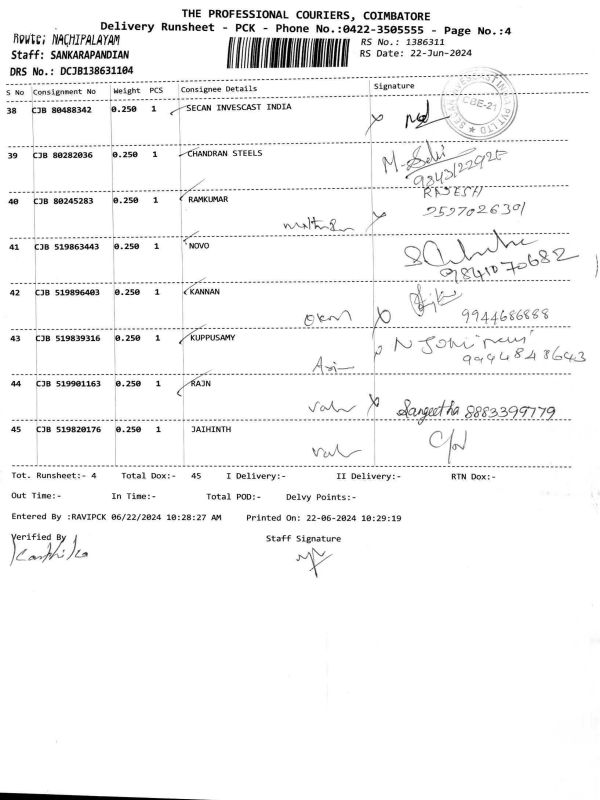 THE PROFESSIONAL COURIERS, COIMBATORE
Delivery Runsheet - PCK - Phone No.:0422-3505555 - Page No.:4
Route: NACHIPALAYAM
RS No.: 1386311
Staff: SANKARAPANDIAN
RS Date: 22-Jun-2024
DRS No.: DCJB138631104
S No Consignment No Weight PCS Consignee Details Signature
38 CJB 80488342 0.250 1 SECAN INVESCAST INDIA
CBE-21
39 CJB 80282036 0.250 1 CHANDRAN STEELS
9843122925
40 CJB 80245283 0.250 1 RAMKUMAR RAJESH
2597026301
41 CJB 519863443 0.250 1 NOVO
9841070682
42 CJB 519896403 0.250 1 KANNAN
9944686888
43 CJB 519839316 0.250 1 KUPPUSAMY
9994848643
44 CJB 519901163 0.250 1 RAJN
Sangeetha 8883399779
45 CJB 519820176 0.250 1 JAIHINTH
Tot. Runsheet:- 4 Total Dox:- 45 I Delivery:- II Delivery:- RTN Dox:-
Out Time:- In Time:- Total POD:- Delvy Points:-
Entered By :RAVIPCK 06/22/2024 10:28:27 AM Printed On: 22-06-2024 10:29:19
Verified By Staff Signature